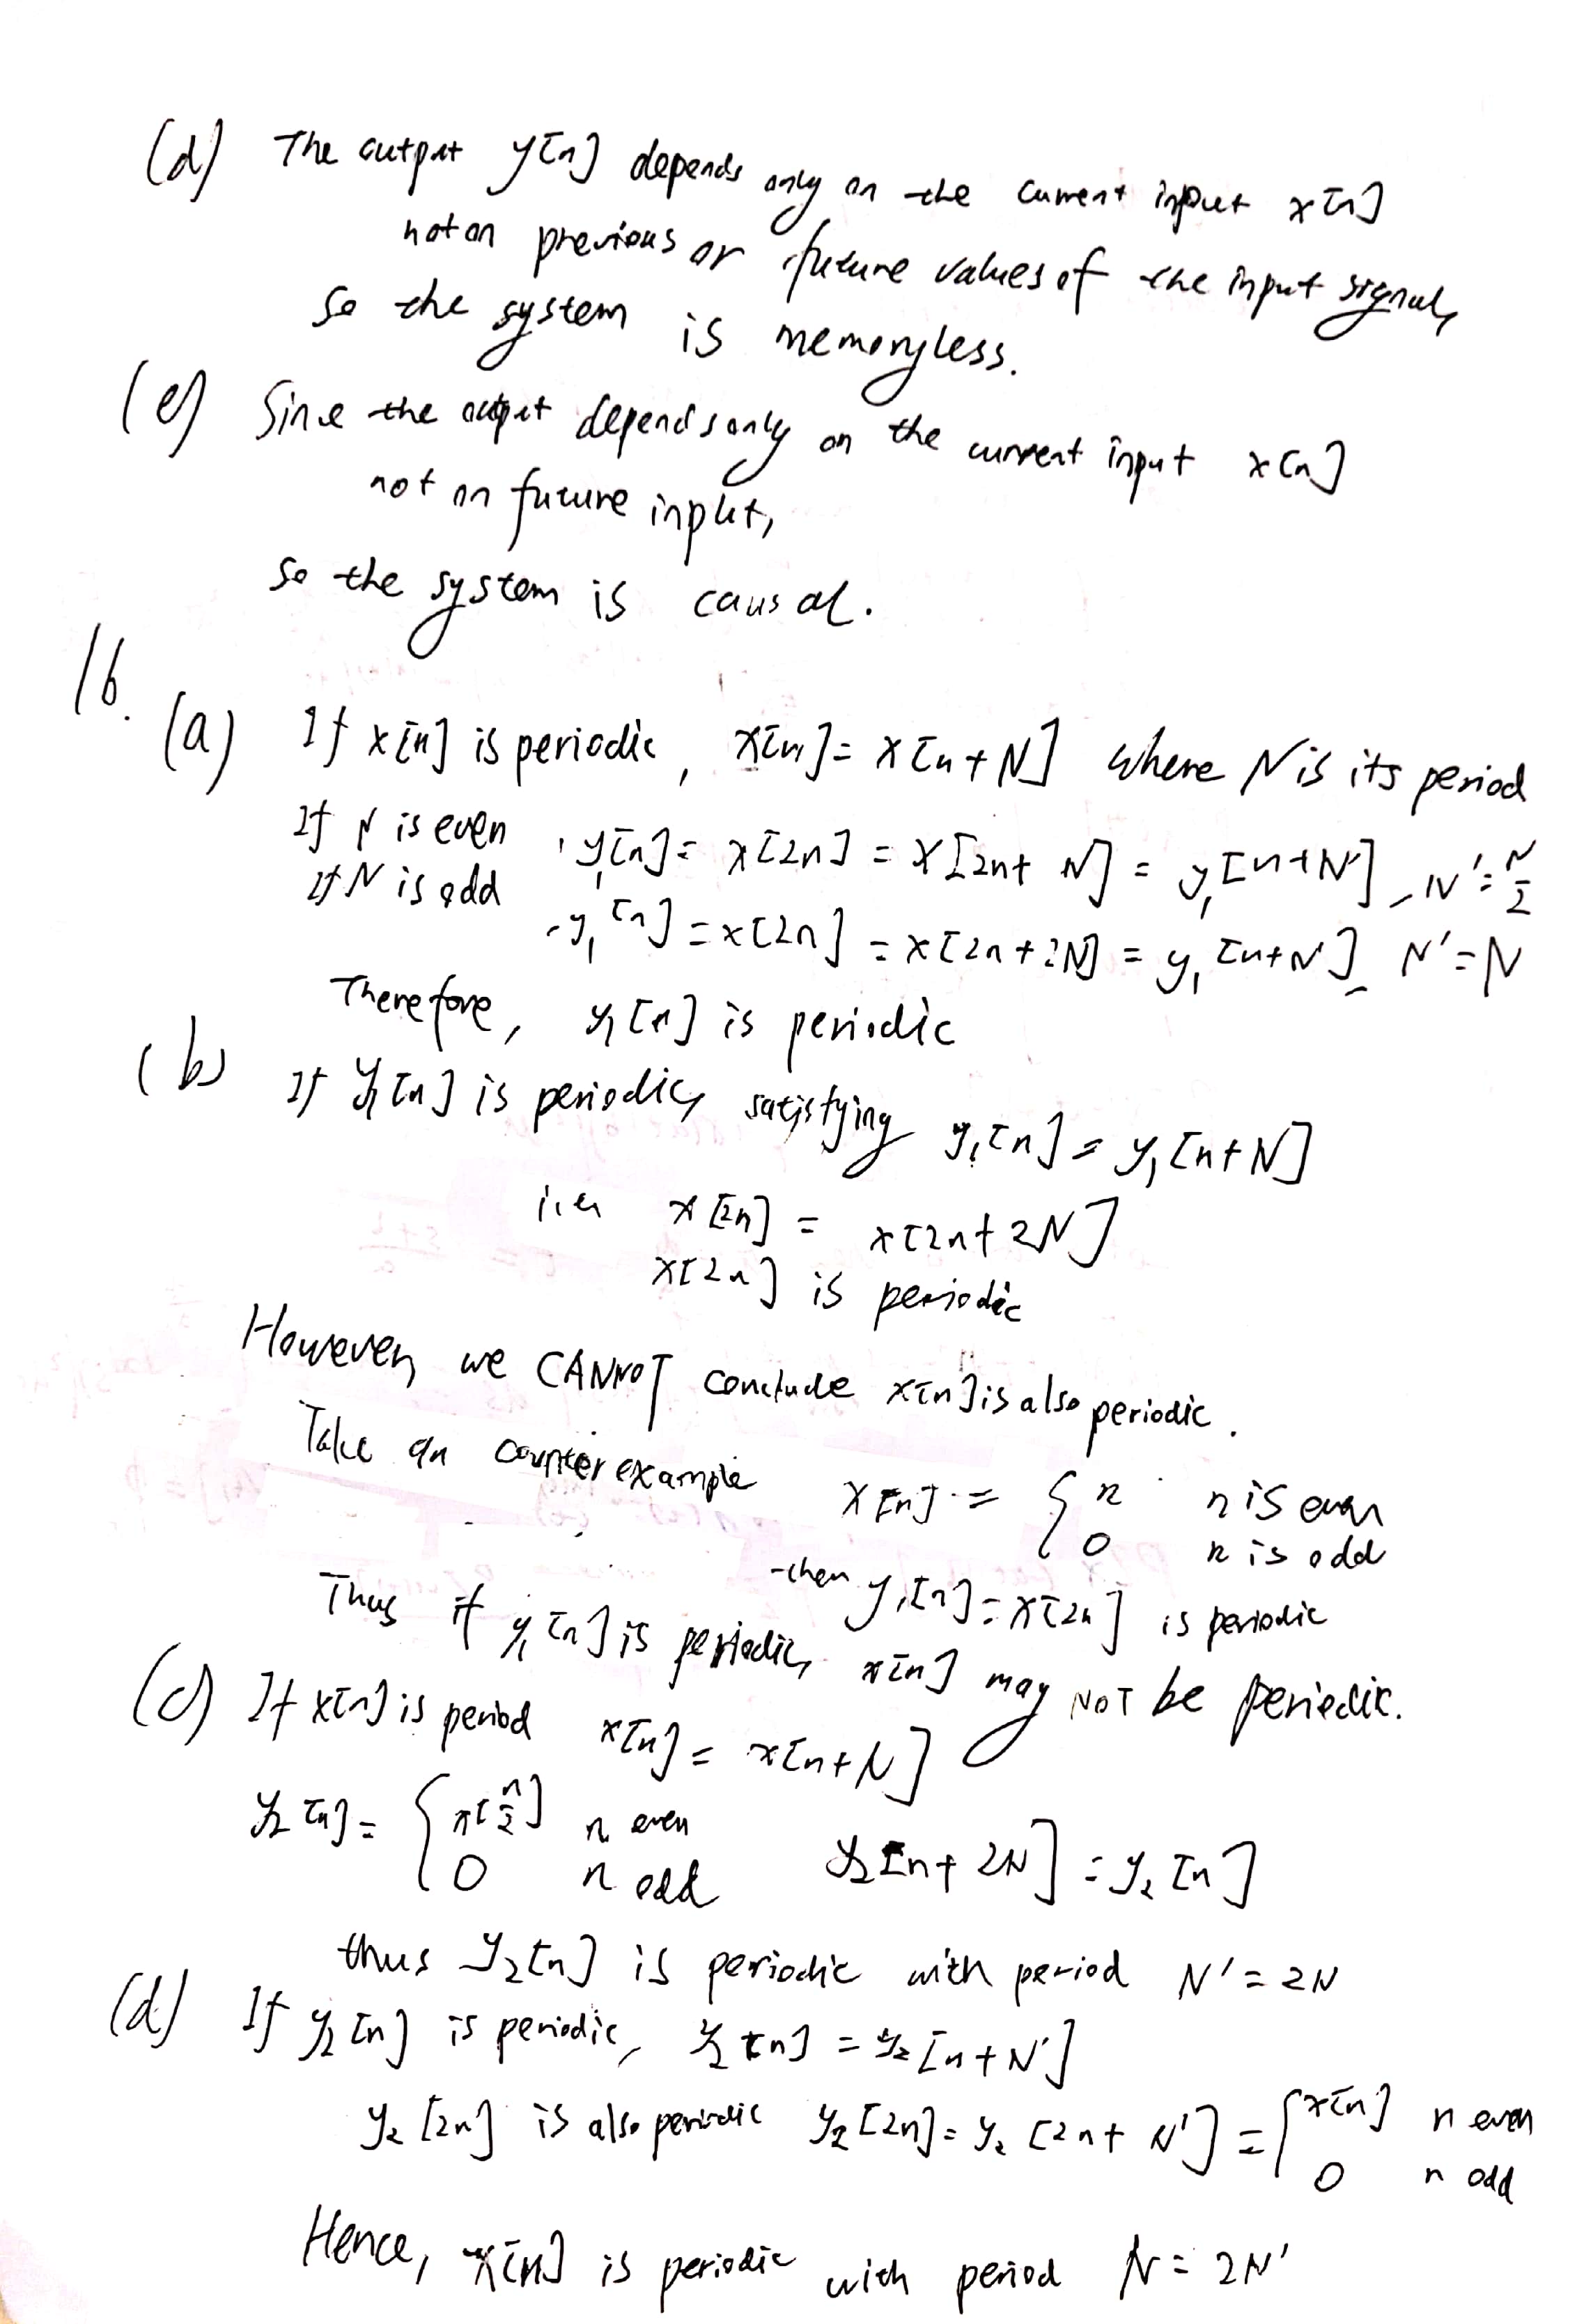 (d) The output y[n] depends only on the current input x[n]
not on previous or future values of the input signal,
so the system is memoryless.
(e) Since the output depends only on the current input x[n]
not on future input,
so the system is causal.
16.
(a) If x[n] is periodic, x[n] = x[n+N] where N is its period
If N is even, y₁[n] = x[2n] = x[2n+N] = y₁[n+N'], N' = N/2
If N is odd, y₁[n] = x[2n] = x[2n+2N] = y₁[n+N'], N' = N
Therefore, y₁[n] is periodic
(b) If y₁[n] is periodic, satisfying y₁[n] = y₁[n+N]
i.e. x[2n] = x[2n+2N]
x[2n] is periodic
However, we CANNOT conclude x[n] is also periodic.
Take an counterexample x[n] = { n n is even
0 n is odd
then y₁[n] = x[2n] is periodic
Thus if y₁[n] is periodic, x[n] may NOT be periedic.
(c) If x[n] is period x[n] = x[n+N]
y₂[n] = { x[n/2] n even
0 n odd y₂[n+2N] = y₂[n]
thus y₂[n] is periodic with period N' = 2N
(d) If y₂[n] is periodic, y₂[n] = y₂[n+N']
y₂[2n] is also periodic y₂[2n] = y₂[2n+N'] = { x[n] n even
0 n odd
Hence, x[n] is periodic with period N = 2N'